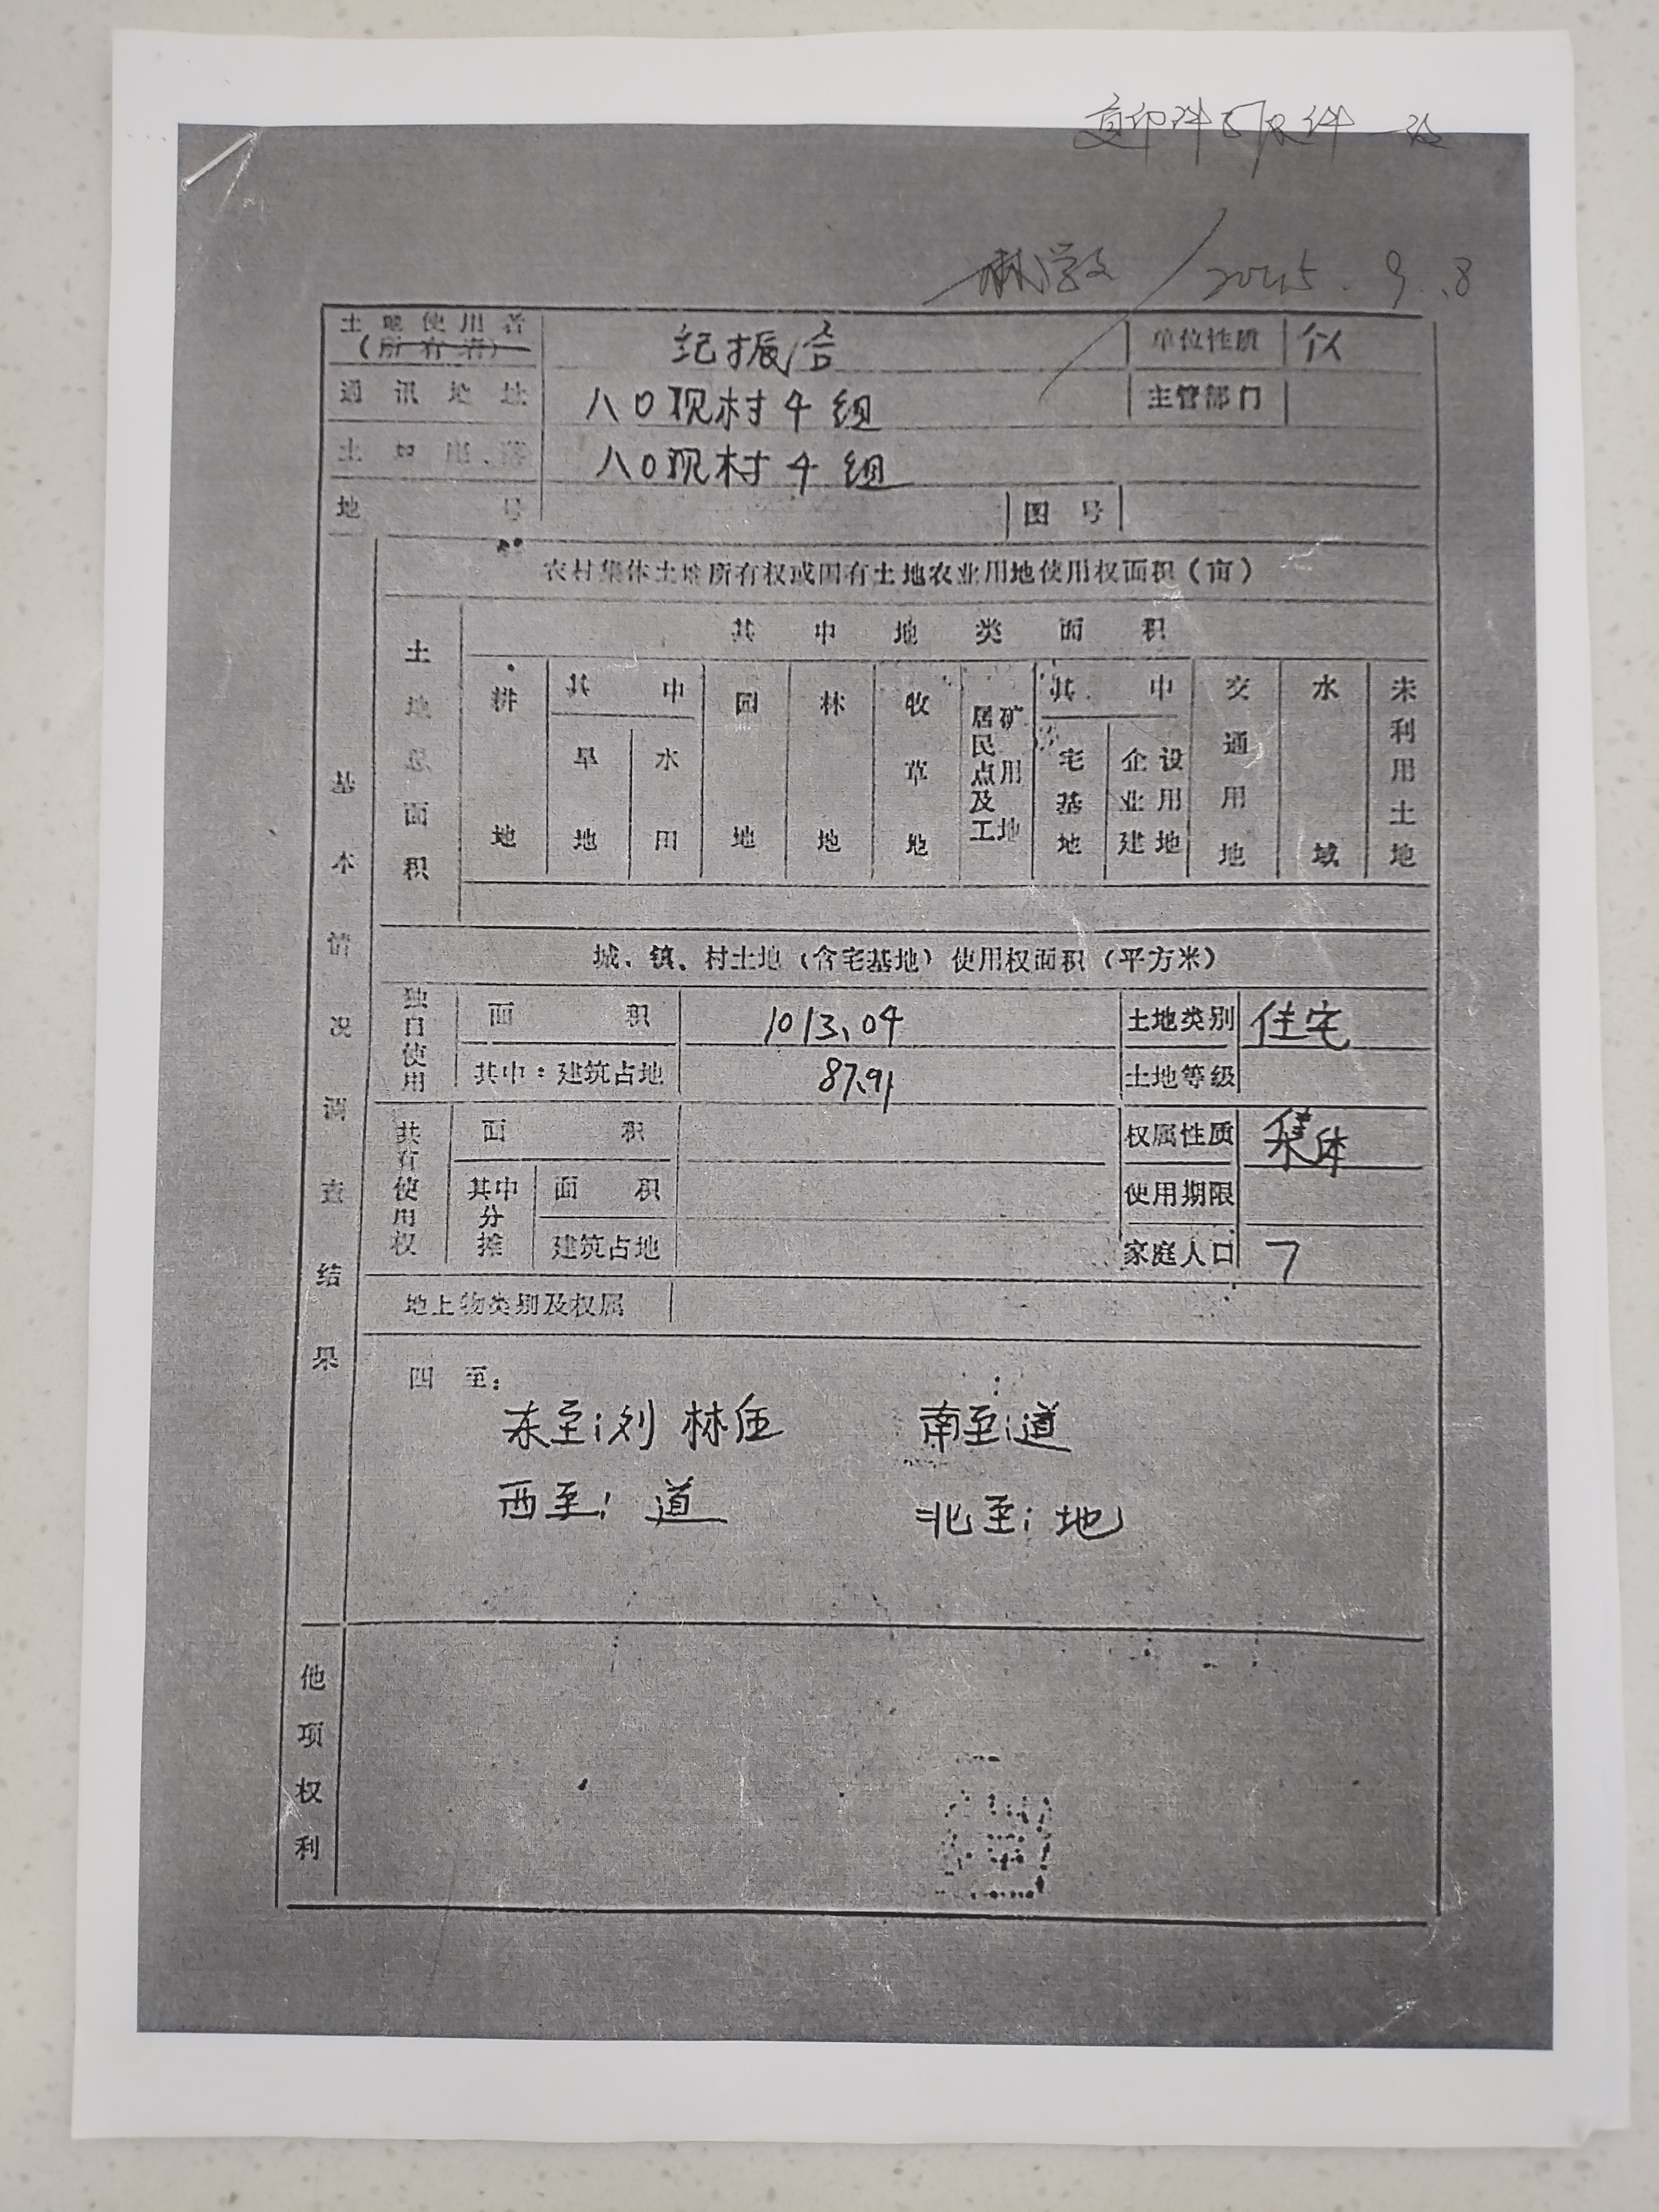 复印件与原件一致
2025.9.8
土地使用者 纪振合 单位性质 个人
(所有者)
通讯地址 八〇现村4组 主管部门
土地坐落 八〇现村4组
地号 图号
基本情况调查结果
农村集体土地所有权或国有土地农业用地使用权面积(亩)
土地总面积 其中地类面积
耕地 其中 旱地 水田 园地 林地 牧草地 居民点及工矿用地 其中 宅基地 企业建设用地 交通用地 水域 未利用土地
城、镇、村土地(含宅基地)使用权面积(平方米)
独自使用 面积 1013.04 土地类别 住宅
其中:建筑占地 87.91 土地等级
共有使用权 面积 权属性质 集体
其中分摊 面积 使用期限
建筑占地 家庭人口 7
地上物类别及权属
四至:
东至:刘林伍 南至:道
西至:道 北至:地
他项权利